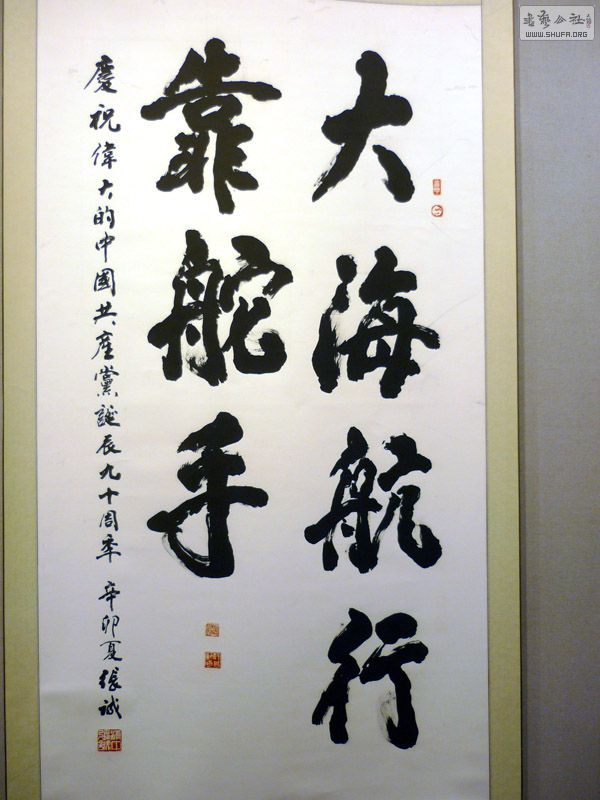 大海航行
靠舵手
慶祝偉大的中國共產黨誕辰九十周年 辛卯夏張誠
書藝公社
WWW.SHUFA.ORG